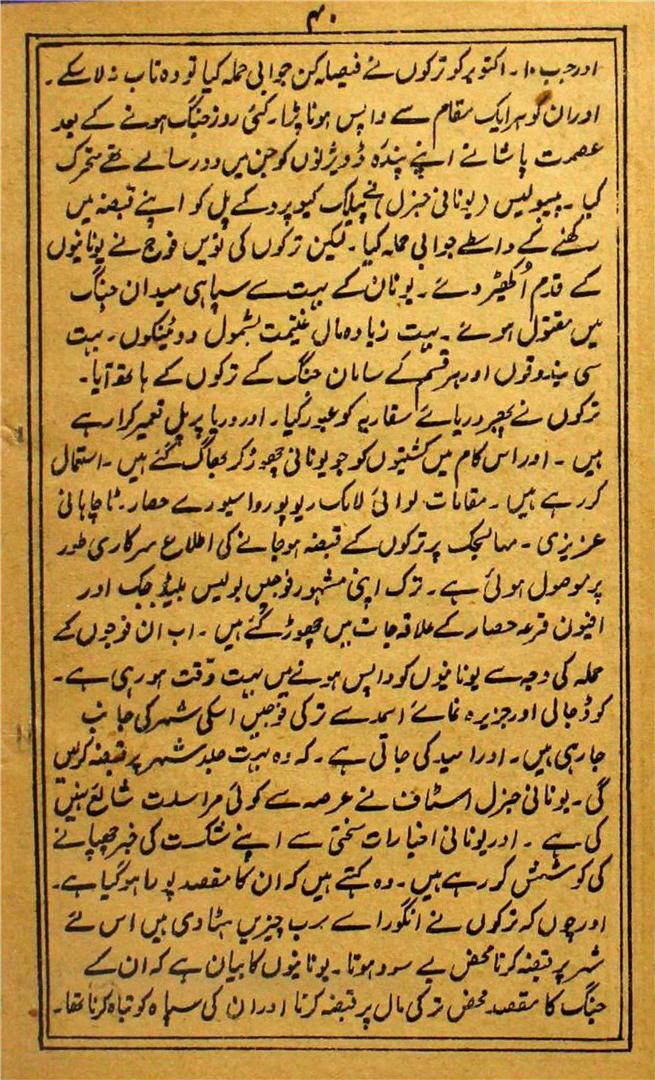 ۴۰
اورجب ۱۰۔ اکتوبر کو ترکوں نے فیصلہ کن جوابی حملہ کیا تو وہ تاب نہ لا سکے۔
اور ان کو ہر ایک مقام سے واپس ہونا پڑا۔ کئی روز جنگ ہونے کے بعد
عصمت پاشا نے اپنے پندرہ ڈویژنوں کو جن میں دو رسالے تھے متحرک
کیا۔ پیپولیس (یونانی جنرل) نے چیلاک کیوپرو کے پل کو اپنے قبضہ میں
رکھنے کے واسطے جوابی حملہ کیا۔ لیکن ترکوں کی نویں فوج نے یونانیوں
کے قدم اُکھیڑ دئے۔ یونان کے بہت سے سپاہی میدان جنگ
میں مقتول ہوئے۔ بہت زیادہ مال غنیمت بشمول دو ٹینکوں۔ بہت
سی بندوقوں اور ہر قسم کے سامان جنگ کے ترکوں کے ہاتھ آیا۔
ترکوں نے پھر دریائے سقاریہ کو عبور کیا۔ اور دریا پر پل تعمیر کرا رہے
ہیں۔ اور اس کام میں کشتیوں کو جو یونانی چھوڑ کر بھاگ گئے ہیں۔ استعمال
کر رہے ہیں۔ مقامات لوائی لانک ریوپورو سیورے حصار۔ ٹاچاہانی
عزیزی۔ مہالچک پر ترکوں کے قبضہ ہو جانے کی اطلاع سرکاری طور
پر موصول ہوئی ہے۔ ترک اپنی مشہور فوجیں بولیس بلیڈجک اور
افیون قرہ حصار کے علاقہ جات میں چھوڑ گئے ہیں۔ اب ان فوجوں کے
حملہ کی وجہ سے یونانیوں کو واپس ہونے میں بہت دقت ہو رہی ہے۔
کوڈجالی اور جزیرہ نمائے اسمد سے ترکی فوجیں اسکی شہر کی جانب
جا رہی ہیں۔ اور امید کی جاتی ہے۔ کہ وہ بہت جلد شہر پر قبضہ کر لیں
گی۔ یونانی جنرل اسٹاف نے عرصہ سے کوئی مراسلت شائع نہیں
کی ہے۔ اور یونانی اخبارات سختی سے اپنے شکست کی خبر چھپانے
کی کوشش کر رہے ہیں۔ وہ کہتے ہیں کہ ان کا مقصد پورا ہو گیا ہے۔
اور چوں کہ ترکوں نے انگورا سے سب چیزیں ہٹا دی ہیں اس لئے
شہر پر قبضہ کرنا محض بے سود ہوتا۔ یونانیوں کا بیان ہے کہ ان کے
جنگ کا مقصد محض ترکی مال پر قبضہ کرنا اور ان کی سپاہ کو تباہ کرنا تھا۔